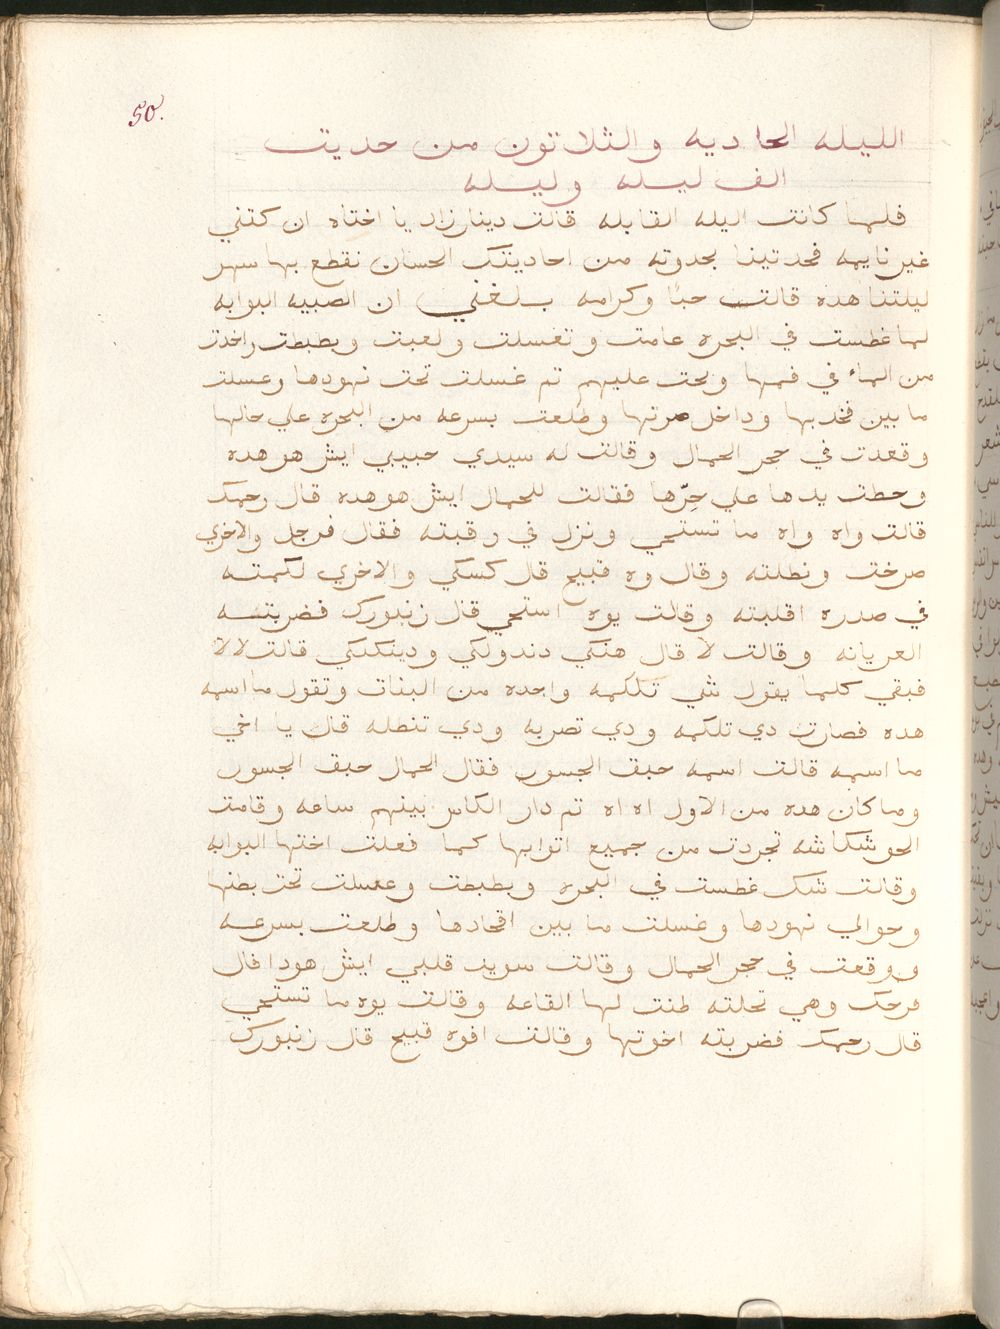 50.
الليله الحاديه والثلاتون من حديت
الف ليله وليله
فلما كانت اليله القابله قالت دينارزاد يا اختاه ان كنتي
غير نايمه فحدتينا بحدوته من احاديتك الحسان نقطع بها سهر
ليلتنا هده قالت حبًا وكرامه بلغني ان الصبيه البوابه
لما غطست في البحره عامت وتغسلت ولعبت وبطبطت واخدت
من الماء في فمها وبخت عليهم تم غسلت تحت نهودها وغسلت
ما بين فخديها وداخل صرتها وطلعت بسرعه من البحره علي حالها
وقعدت في حجر الحمال وقالت له سيدي حبيبي ايش هو هده
وحطت يدها علي حِرّها فقالت للحمال ايش هو هده قال رحمك
قالت واه واه ما تستحي ونزل في رقبته فقال فرجل والاخري
صرخت ونطلته وقال وه قبيح قال كسكي والاخري لكمته
في صدره اقلبته وقالت يوه استحي قال زنبورك فضربته
العريانه وقالت لا قال هنكي دندولكي ودينكلكي قالت لا لا
فبقي كلما يقول شي تلكمه واحده من البنات وتقول ما اسمه
هده فصارت دي تلكمه ودي تضربه ودي تنطله قال يا اخي
ما اسمه قالت اسمه حبق الجسور فقال الحمال حبق الجسور
وما كان هده من الاول اه اه تم دار الكاس بينهم ساعه وقامت
الحوشكاشه تجردت من جميع اتوابها كما فعلت اختها البوابه
وقالت شك غطست في البحره وبطبطت وغسلت تحت بطنها
وحوالي نهودها وغسلت ما بين افخادها وطلعت بسرعه
ووقعت في حجر الحمال وقالت سويد قلبي ايش هو دا قال
فرحك وهي تحلته طنت لها القاعه وقالت يوه ما تستحي
قال رحمك فضربته اخوتها وقالت افوه قبيح قال زنبورك